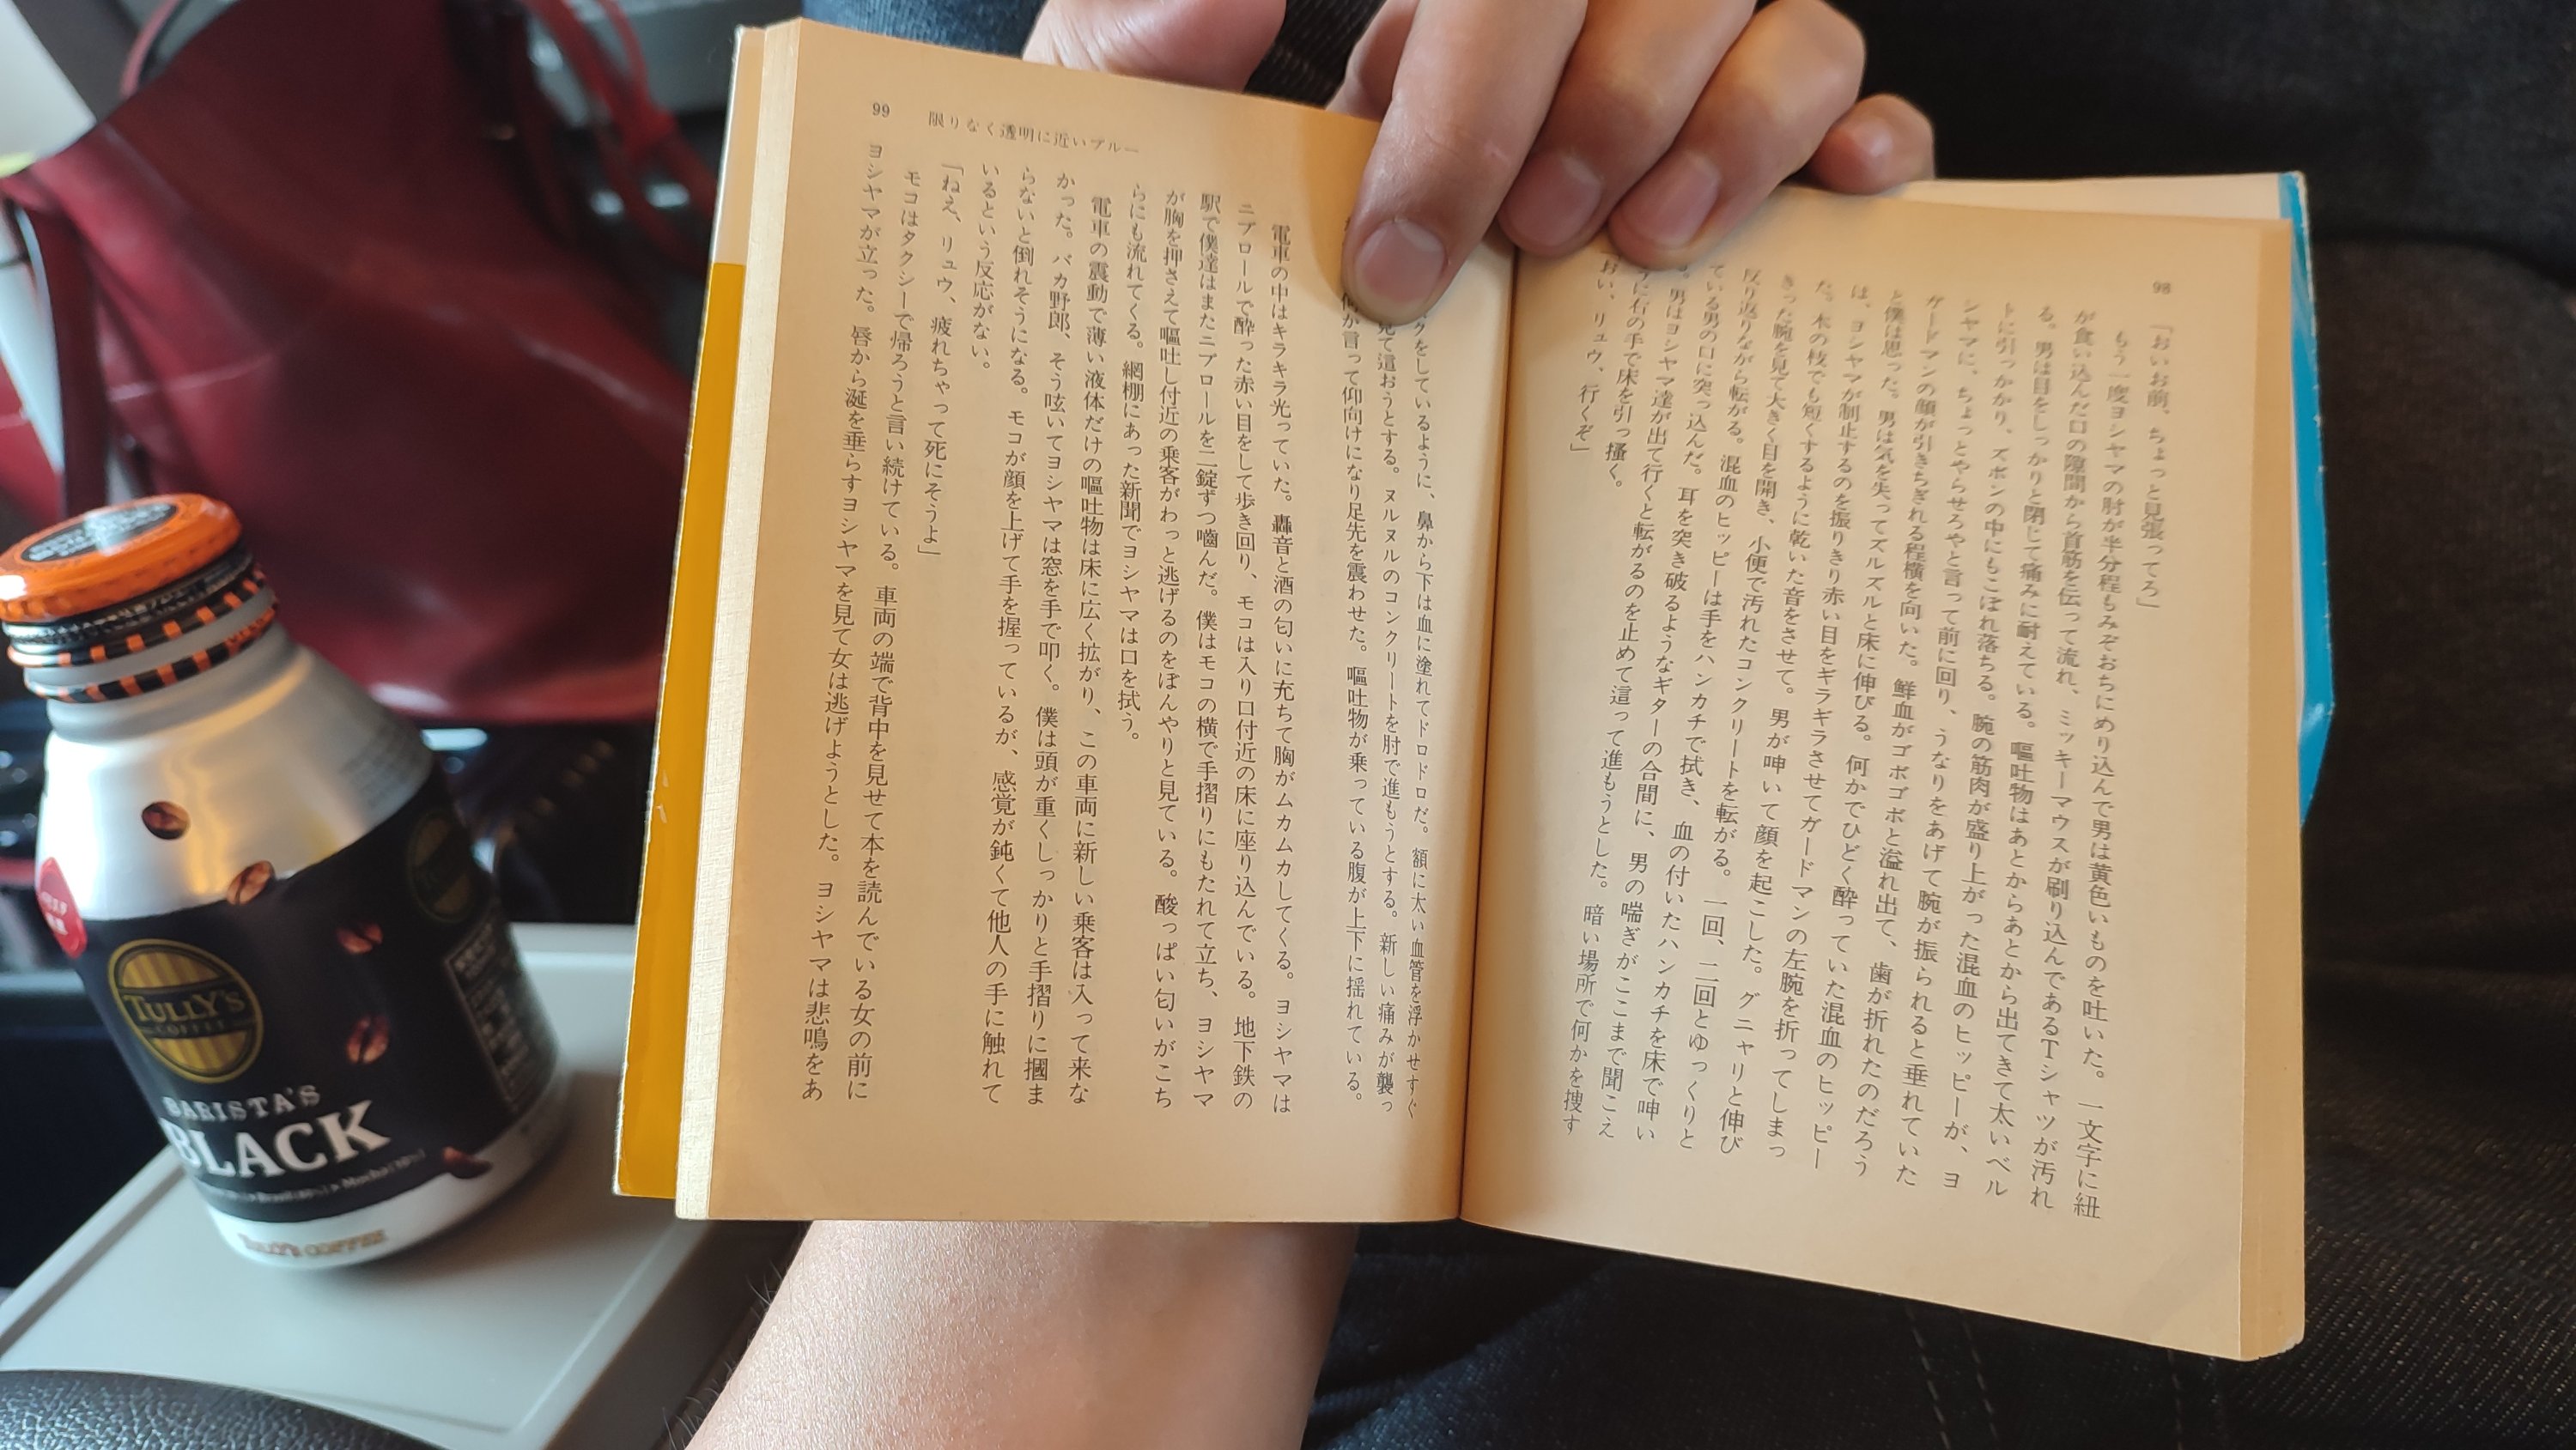 98
「おいお前、ちょっと見張ってろ」
もう一度ヨシヤマの肘が半分程もみぞおちにめり込んで男は黄色いものを吐いた。一文字に紐
が食い込んだ口の隙間から首筋を伝って流れ、ミッキーマウスが刷り込んであるTシャツが汚れ
る。男は目をしっかりと閉じて痛みに耐えている。嘔吐物はあとからあとから出てきて太いベル
トに引っかかり、ズボンの中にもこぼれ落ちる。腕の筋肉が盛り上がった混血のヒッピーが、ヨ
シヤマに、ちょっとやらせろやと言って前に回り、うなりをあげて腕が振られると垂れていた
ガードマンの顔が引きちぎれる程横を向いた。鮮血がゴボゴボと溢れ出て、歯が折れたのだろう
と僕は思った。男は気を失ってズルズルと床に伸びる。何かでひどく酔っていた混血のヒッピー
は、ヨシヤマが制止するのを振りきり赤い目をギラギラさせてガードマンの左腕を折ってしまっ
た。木の枝でも短くするように乾いた音をさせて。男が呻いて顔を起こした。グニャリと伸び
きった腕を見て大きく目を開き、小便で汚れたコンクリートを転がる。一回、二回とゆっくりと
反り返りながら転がる。混血のヒッピーは手をハンカチで拭き、血の付いたハンカチを床で呻い
ている男の口に突っ込んだ。耳を突き破るようなギターの合間に、男の喘ぎがここまで聞こえ
る。男はヨシヤマ達が出て行くと転がるのを止めて這って進もうとした。暗い場所で何かを捜す
に右の手で床を引っ掻く。
おい、リュウ、行くぞ」
クをしているように、鼻から下は血に塗れてドロドロだ。額に太い血管を浮かせすぐ
見て這おうとする。ヌルヌルのコンクリートを肘で進もうとする。新しい痛みが襲っ
何か言って仰向けになり足先を震わせた。嘔吐物が乗っている腹が上下に揺れている。
電車の中はキラキラ光っていた。轟音と酒の匂いに充ちて胸がムカムカしてくる。ヨシヤマは
ニブロールで酔った赤い目をして歩き回り、モコは入り口付近の床に座り込んでいる。地下鉄の
駅で僕達はまたニブロールを二錠ずつ嚙んだ。僕はモコの横で手摺りにもたれて立ち、ヨシヤマ
が胸を押さえて嘔吐し付近の乗客がわっと逃げるのをぼんやりと見ている。酸っぱい匂いがこち
らにも流れてくる。網棚にあった新聞でヨシヤマは口を拭う。
電車の震動で薄い液体だけの嘔吐物は床に広く拡がり、この車両に新しい乗客は入って来な
かった。バカ野郎、そう呟いてヨシヤマは窓を手で叩く。僕は頭が重くしっかりと手摺りに摑ま
らないと倒れそうになる。モコが顔を上げて手を握っているが、感覚が鈍くて他人の手に触れて
いるという反応がない。
「ねえ、リュウ、疲れちゃって死にそうよ」
モコはタクシーで帰ろうと言い続けている。車両の端で背中を見せて本を読んでいる女の前に
ヨシヤマが立った。唇から涎を垂らすヨシヤマを見て女は逃げようとした。ヨシヤマは悲鳴をあ
99 限りなく透明に近いブルー
TULLY'S
COFFEE
BARISTA'S
BLACK
TULLY'S COFFEE